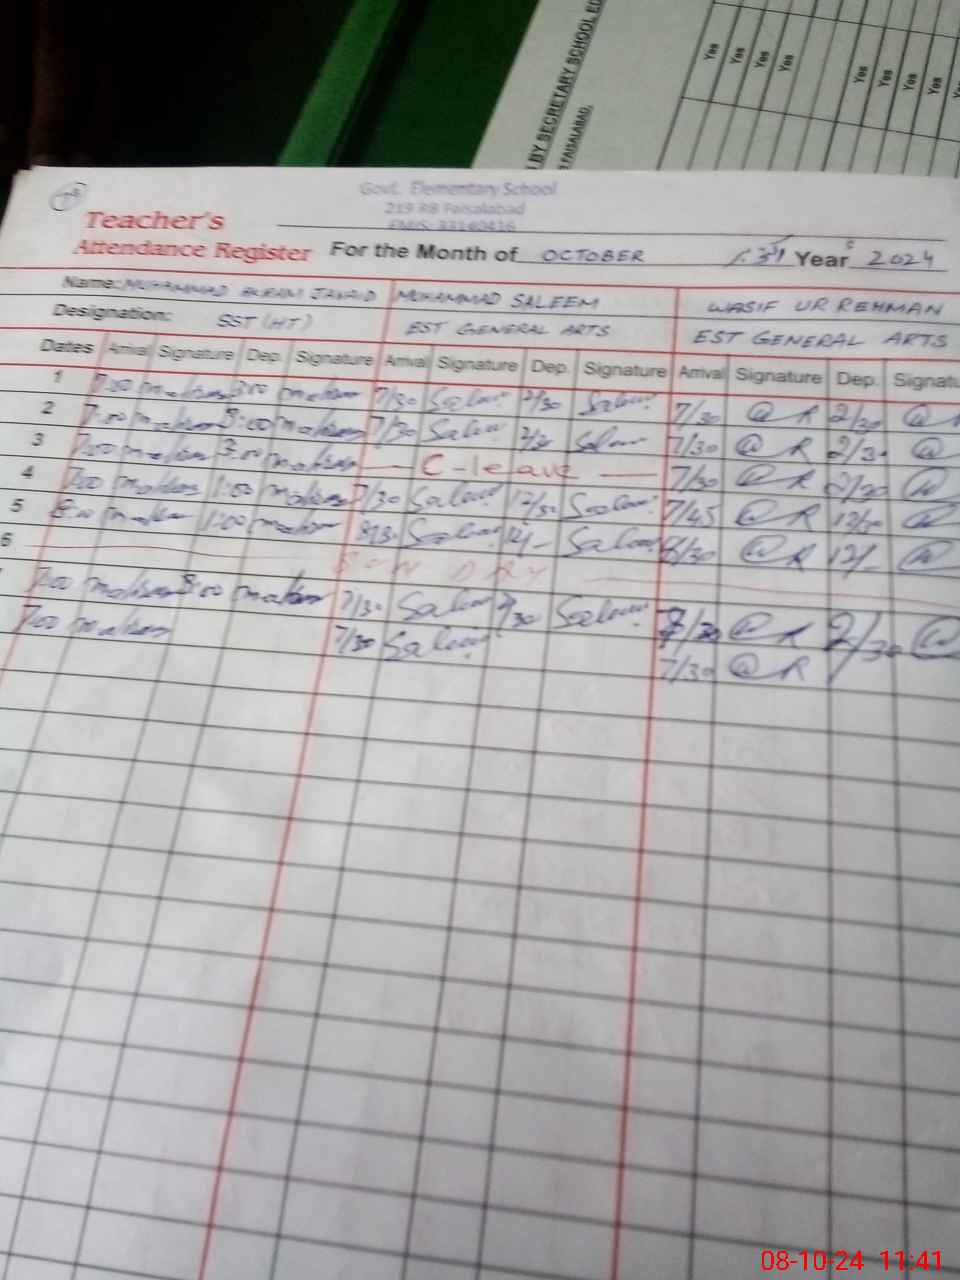 BY SECRETARY SCHOOL ED
FAISALABAD.
Yes Yes Yes Yes Yes Yes Yes Yes
Govt. Elementary School
219 RB Faisalabad
EMIS 33140416
Teacher's
Attendance Register For the Month of OCTOBER Year 2024
Name: MUHAMMAD AKRAM JAVAID MUHAMMAD SALEEM WASIF UR REHMAN
Designation: SST (HT) EST GENERAL ARTS EST GENERAL ARTS
Dates Arrival Signature Dep. Signature Arrival Signature Dep. Signature Arrival Signature Dep. Signatu
1 7:00 3:00 7/30 Saleem 2/30 Saleem 7/30 @ R 2/30 @
2 7:00 3:00 7/30 Saleem Saleem 7/30 @ R 2/30 @
3 7:00 3:00 C-leave 7/30 @ R 2/30 @
4 7:00 1:00 7/30 Saleem 12/30 Saleem 7/45 @ R 12/30 @
5 8:00 1:00 Saleem 12/- Saleem 8/30 @ R 12/- @
6 SUNDAY
7:00 3:00 7/30 Saleem 2/30 Saleem 7/30 @ R 2/30 @
7:00 7/30 Saleem 7/30 @ R
08-10-24 11:41